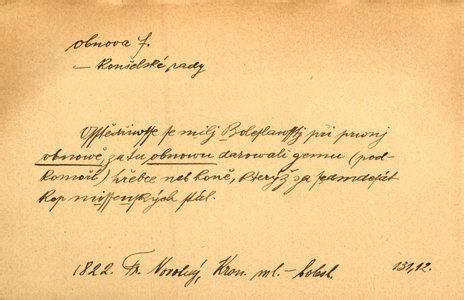 obnova f.
— Konšelské rady
se milj Boleslawsstj při prwnj
obnowě, za tu obnowu darowali gemu (pod-
komoří) hřebce neb koně, kterýž za sedmdesát
kop missenských stál.
1822. Fr. Novotný, Kron. ml.-bolesl. 131,12.